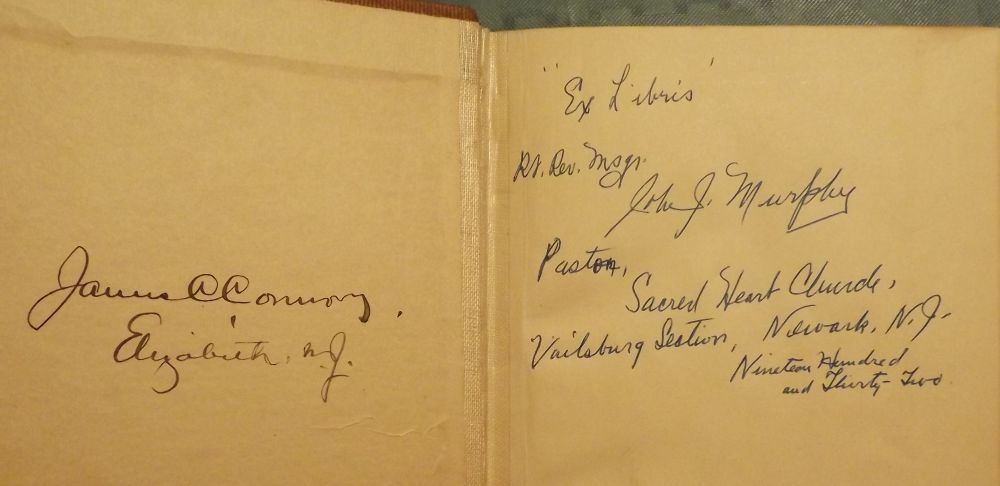 James C Connory.
Elizabeth, N.J.
"Ex Libris"
Rt. Rev. Msgr.
John J. Murphy
Pastor,
Sacred Heart Church,
Vailsburg Section, Newark, N.J.
Nineteen Hundred
and Thirty-Two